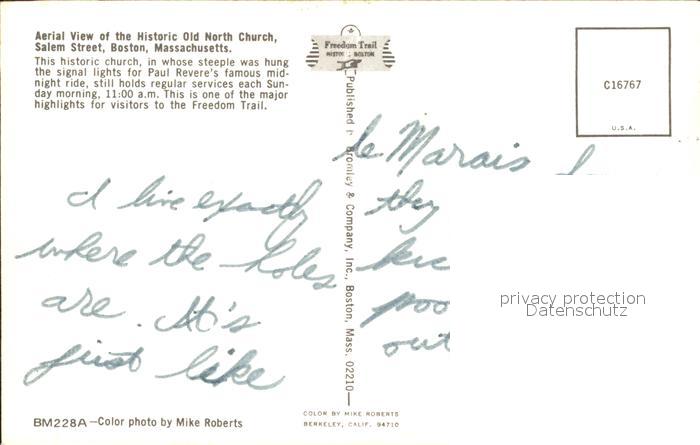 Aerial View of the Historic Old North Church,
Salem Street, Boston, Massachusetts.
This historic church, in whose steeple was hung
the signal lights for Paul Revere's famous mid-
night ride, still holds regular services each Sun-
day morning, 11:00 a.m. This is one of the major
highlights for visitors to the Freedom Trail.
Freedom Trail
HISTORIC BOSTON
C16767
U.S.A.
Published by Bromley & Company, Inc., Boston, Mass. 02210
I live exactly
where the holes
are. It's
just like
le Marais
they
out
privacy protection
Datenschutz
BM228A—Color photo by Mike Roberts
COLOR BY MIKE ROBERTS
BERKELEY, CALIF. 94710